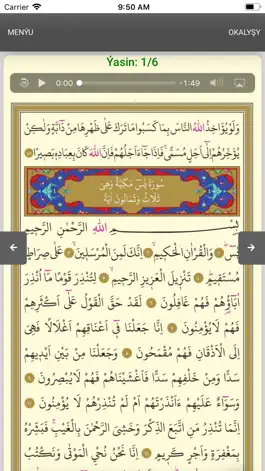 Carrier 9:50 AM
MENÝU OKALYŞY
Ýasin: 1/6
0:00 -1:49
وَلَوْ يُؤَاخِذُ اللّٰهُ النَّاسَ بِمَا كَسَبُوا مَا تَرَكَ عَلٰى ظَهْرِهَا مِنْ دَٓابَّةٍ وَلٰكِنْ
يُؤَخِّرُهُمْ اِلٰٓى اَجَلٍ مُسَمًّىۚ فَاِذَا جَٓاءَ اَجَلُهُمْ فَاِنَّ اللّٰهَ كَانَ بِعِبَادِه۪ بَص۪يرًا
سُورَةُ يٰسٓ مَكِّيَّةٌ وَهِيَ
ثَلَاثٌ وَثَمَانُونَ اٰيَةً
بِسْمِ اللّٰهِ الرَّحْمٰنِ الرَّح۪يمِ
يٰسٓ وَالْقُرْاٰنِ الْحَك۪يمِ اِنَّكَ لَمِنَ الْمُرْسَل۪ينَ عَلٰى صِرَاطٍ
مُسْتَق۪يمٍ تَنْز۪يلَ الْعَز۪يزِ الرَّح۪يمِ لِتُنْذِرَ قَوْمًا مَٓا اُنْذِرَ
اٰبَٓاؤُ۬هُمْ فَهُمْ غَافِلُونَ لَقَدْ حَقَّ الْقَوْلُ عَلٰٓى اَكْثَرِهِمْ
فَهُمْ لَا يُؤْمِنُونَ اِنَّا جَعَلْنَا ف۪ٓي اَعْنَاقِهِمْ اَغْلَالًا فَهِيَ
اِلَى الْاَذْقَانِ فَهُمْ مُقْمَحُونَ وَجَعَلْنَا مِنْ بَيْنِ اَيْد۪يهِمْ
سَدًّا وَمِنْ خَلْفِهِمْ سَدًّا فَاَغْشَيْنَاهُمْ فَهُمْ لَا يُبْصِرُونَ
وَسَوَٓاءٌ عَلَيْهِمْ ءَاَنْذَرْتَهُمْ اَمْ لَمْ تُنْذِرْهُمْ لَا يُؤْمِنُونَ
اِنَّمَا تُنْذِرُ مَنِ اتَّبَعَ الذِّكْرَ وَخَشِيَ الرَّحْمٰنَ بِالْغَيْبِۚ فَبَشِّرْهُ
بِمَغْفِرَةٍ وَاَجْرٍ كَر۪يمٍ اِنَّا نَحْنُ نُحْيِ الْمَوْتٰى وَنَكْتُبُ